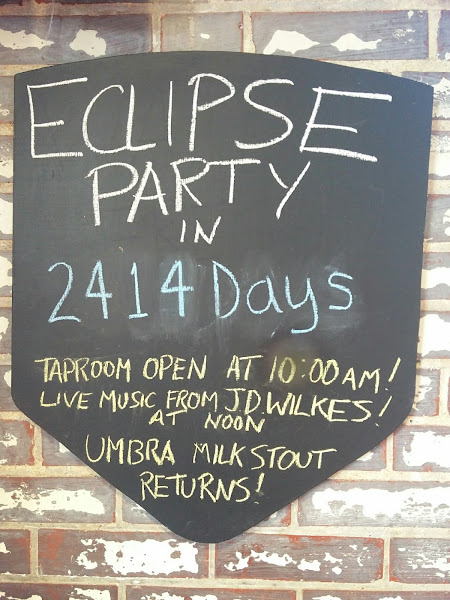 ECLIPSE
PARTY
IN
2414 Days
TAPROOM OPEN AT 10:00 AM!
LIVE MUSIC FROM J.D. WILKES!
AT NOON
UMBRA MILK STOUT
RETURNS!